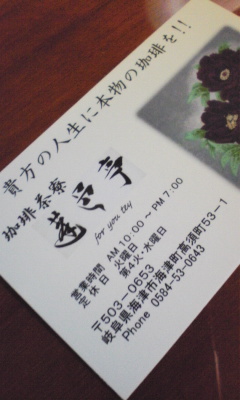 貴方の人生に本物の珈琲を!!
珈琲茶寮
for you tey
営業時間 AM 10:00 ～ PM 7:00
定休日 火曜日
第4火・水曜日
〒503-0653
岐阜県海津市海津町高須町53－1
Phone 0584-53-0643